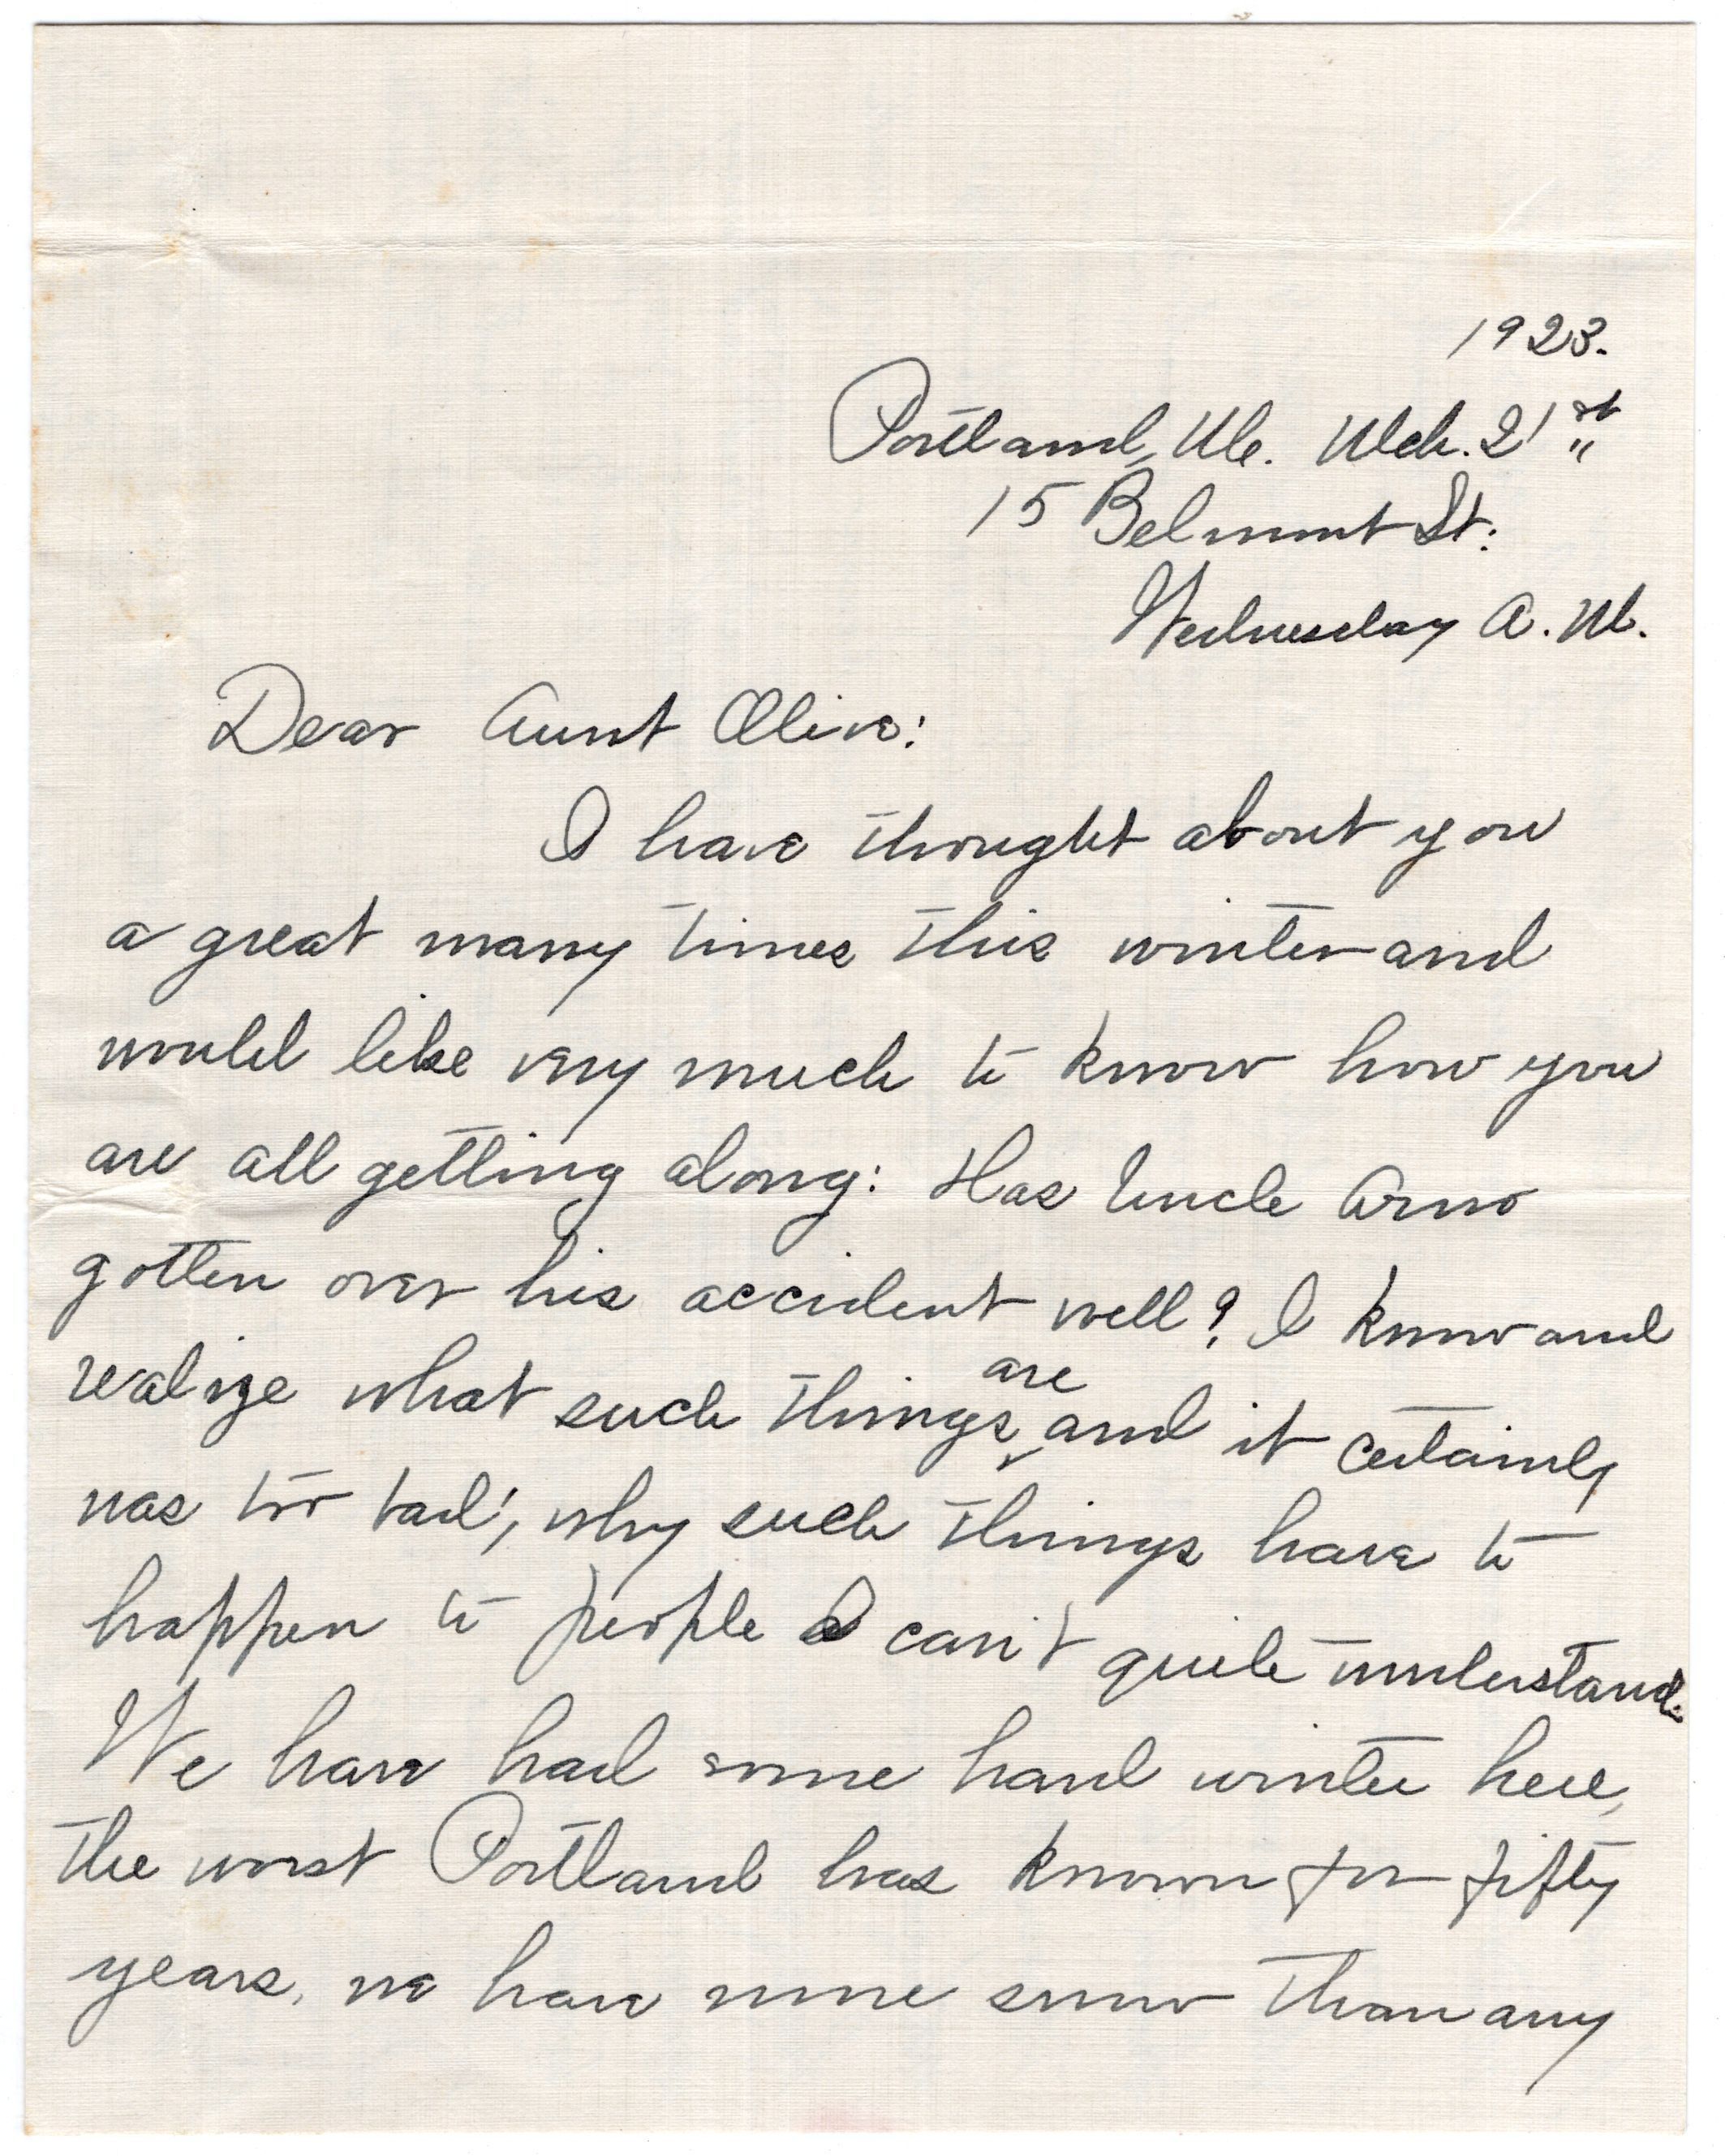 1923.
Portland, Me. Mch. 21st
15 Belmont St.
Wednesday A.M.
Dear Aunt Olive:
I have thought about you
a great many times this winter and
would like very much to know how you
are all getting along: Has Uncle Arno
gotten over his accident well? I know and
are
realize what such things and it certainly
was too bad; why such things have to
happen to people I can't quite understand.
We have had some hard winter here,
the worst Portland has known for fifty
years, we have more snow than any